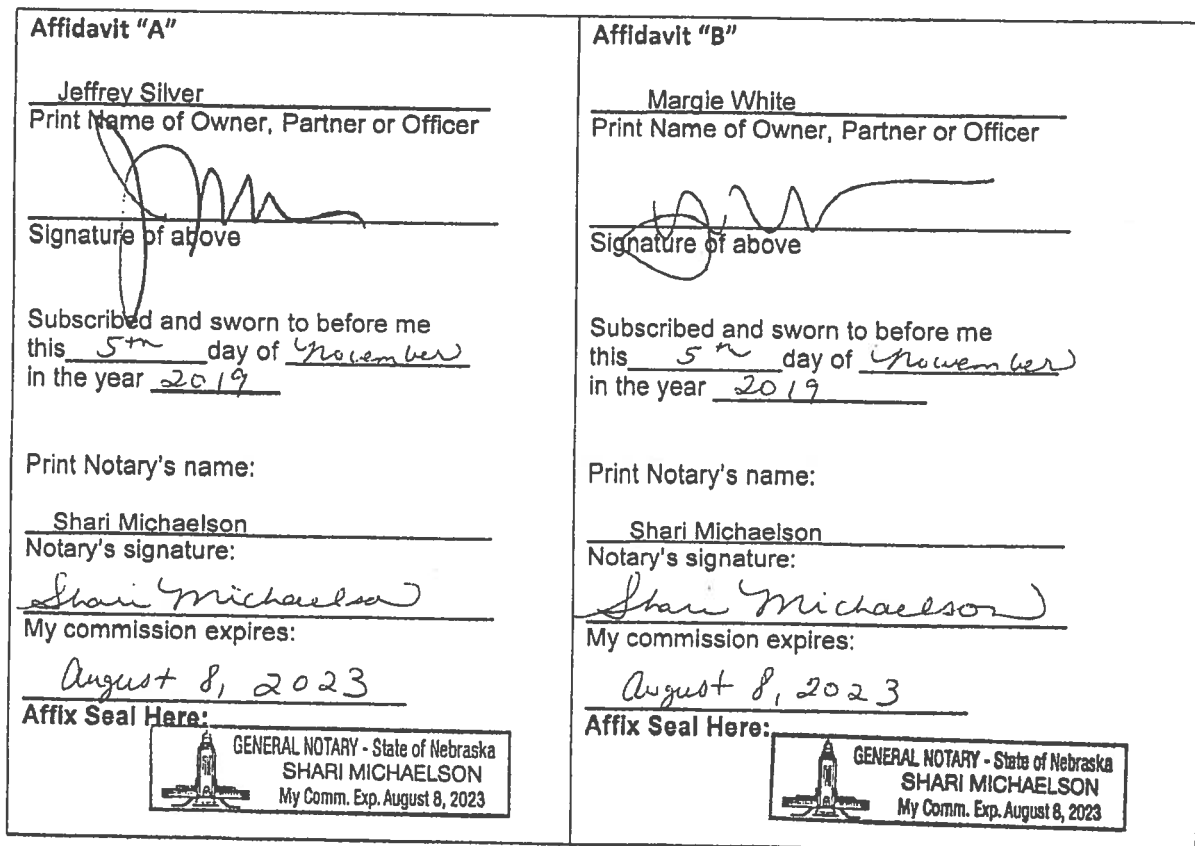 Affidavit "A"
Jeffrey Silver
Print Name of Owner, Partner or Officer
Signature of above
Subscribed and sworn to before me
this 5th day of November
in the year 2019
Print Notary's name:
Shari Michaelson
Notary's signature:
Shari Michaelson
My commission expires:
August 8, 2023
Affix Seal Here:
GENERAL NOTARY - State of Nebraska
SHARI MICHAELSON
My Comm. Exp. August 8, 2023
Affidavit "B"
Margie White
Print Name of Owner, Partner or Officer
Signature of above
Subscribed and sworn to before me
this 5th day of November
in the year 2019
Print Notary's name:
Shari Michaelson
Notary's signature:
Shari Michaelson
My commission expires:
August 8, 2023
Affix Seal Here:
GENERAL NOTARY - State of Nebraska
SHARI MICHAELSON
My Comm. Exp. August 8, 2023